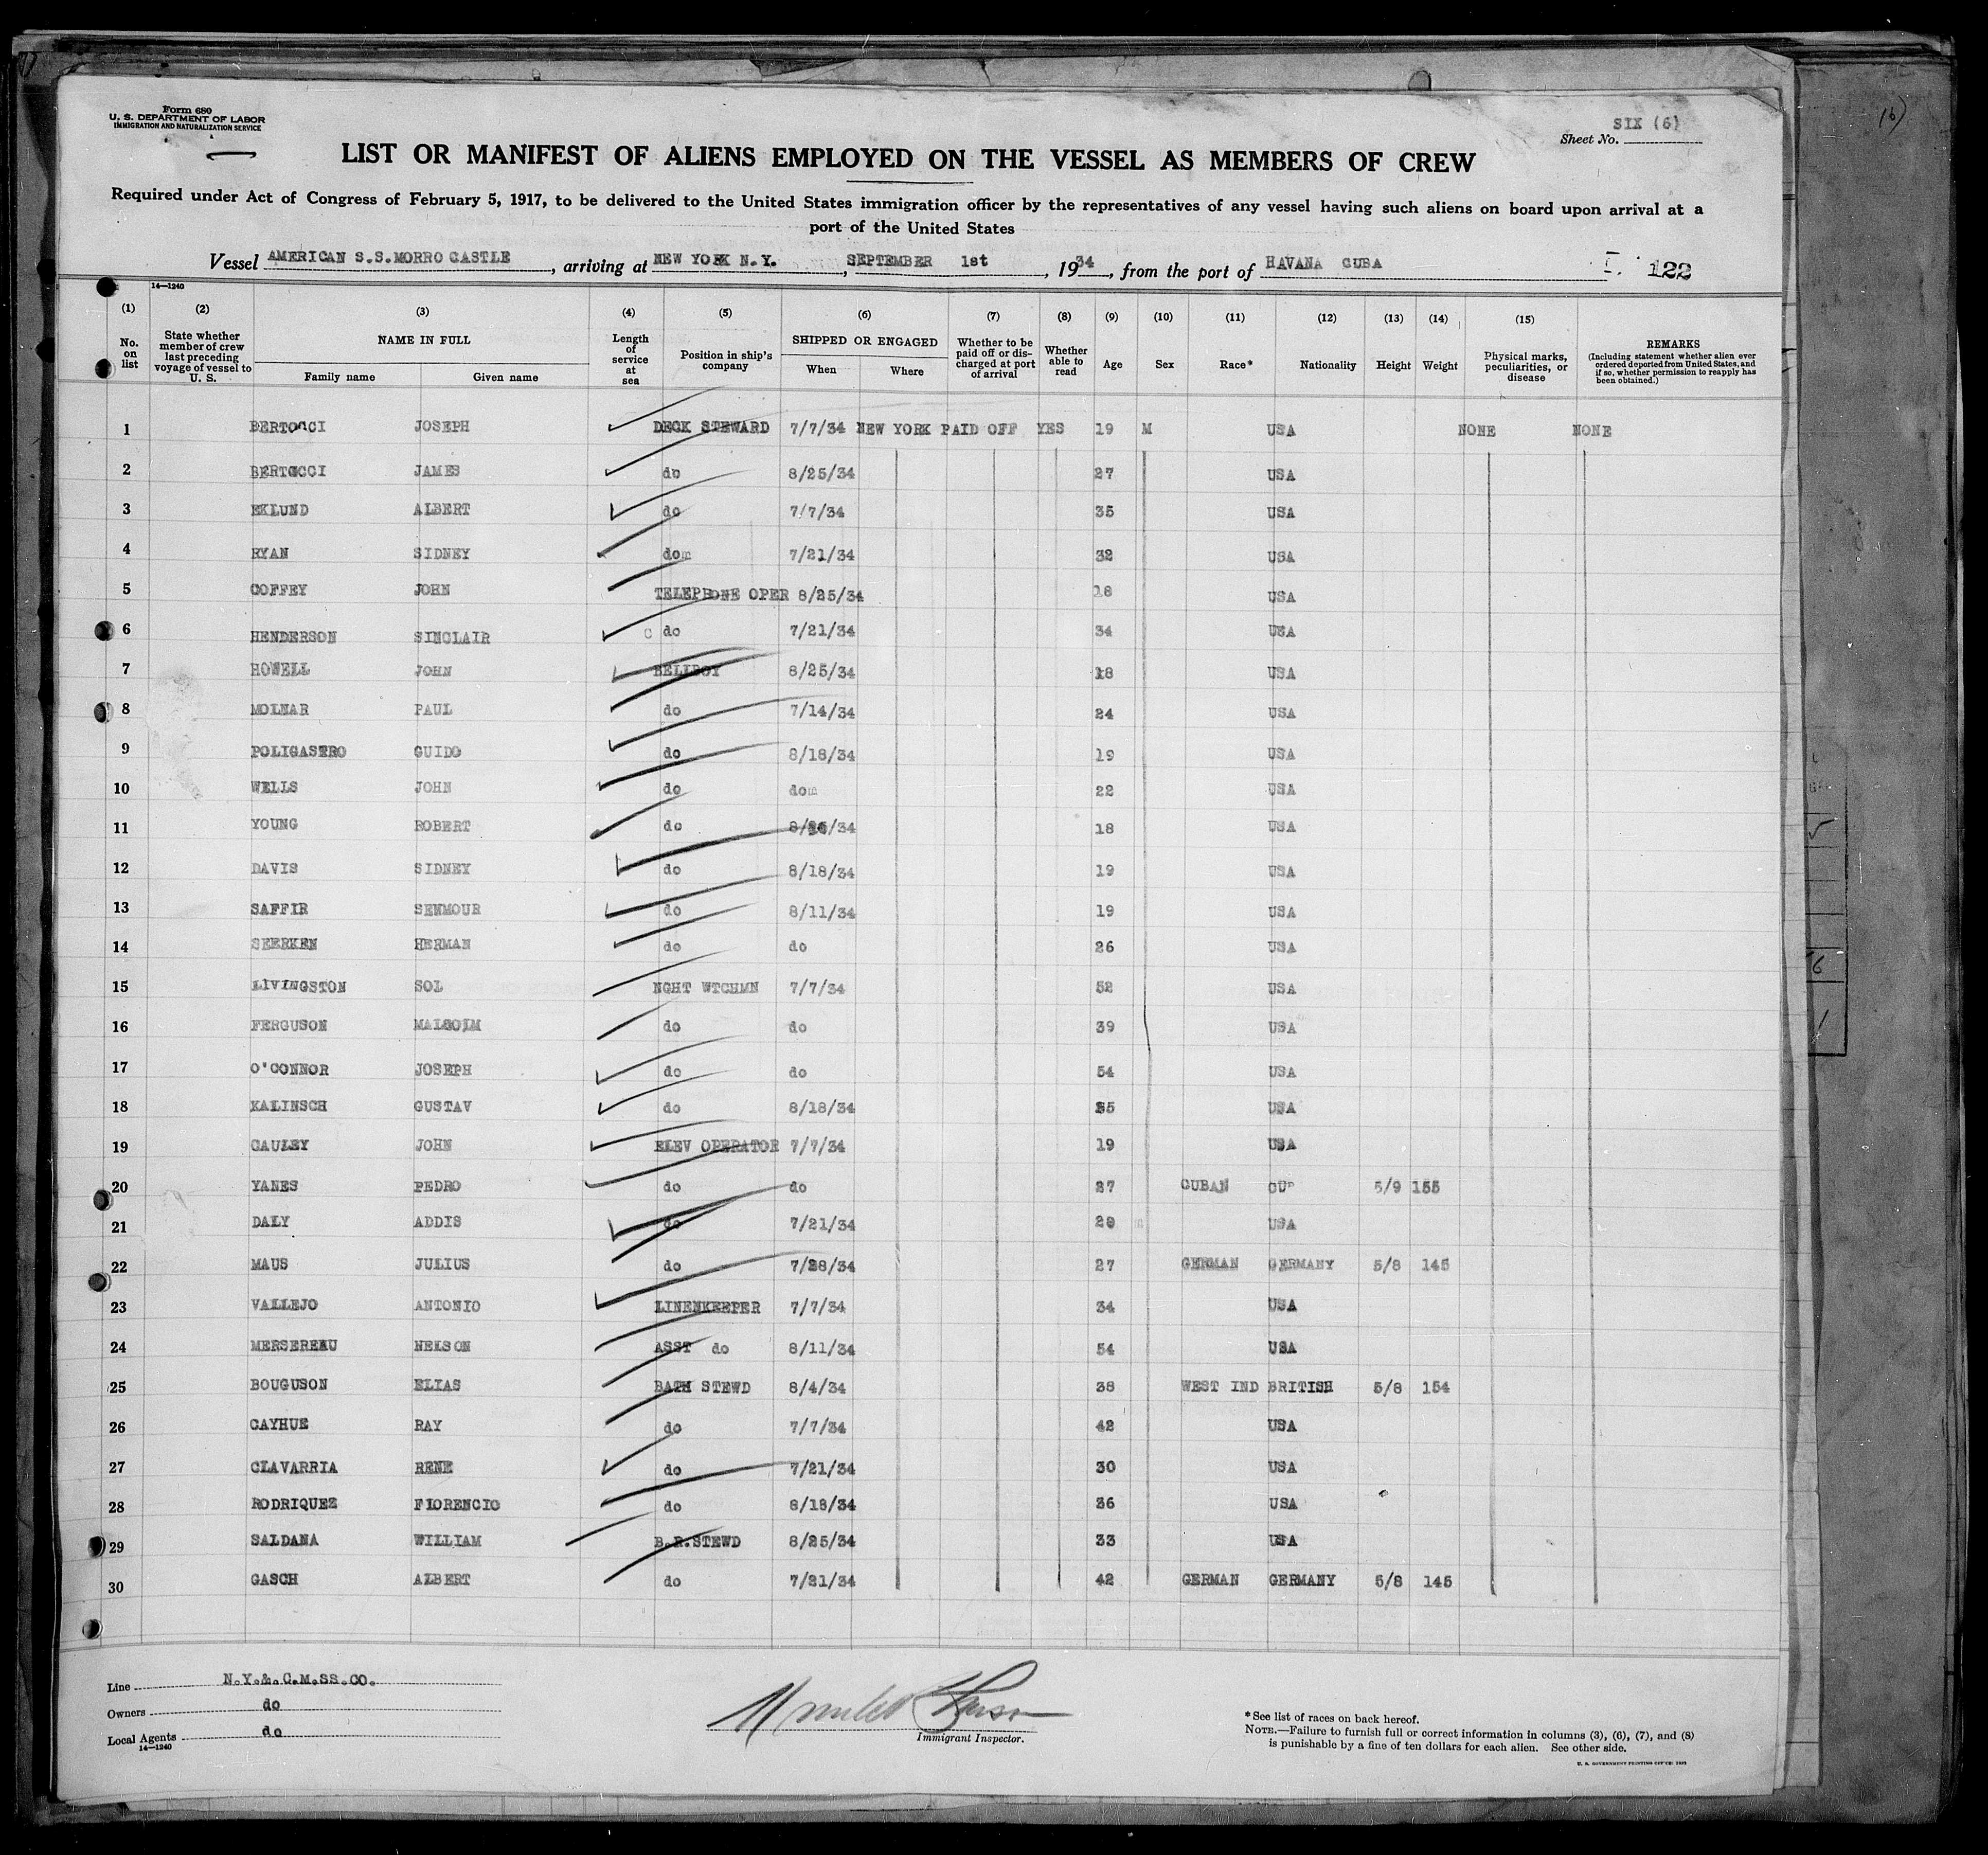 Form 680
U. S. DEPARTMENT OF LABOR
IMMIGRATION AND NATURALIZATION SERVICE
SIX (6)
Sheet No.
LIST OR MANIFEST OF ALIENS EMPLOYED ON THE VESSEL AS MEMBERS OF CREW
Required under Act of Congress of February 5, 1917, to be delivered to the United States immigration officer by the representatives of any vessel having such aliens on board upon arrival at a
port of the United States
Vessel AMERICAN S.S.MORRO CASTLE, arriving at NEW YORK N.Y., SEPTEMBER 1st, 1934, from the port of HAVANA CUBA 122
14—1240
(1) (2) (3) (4) (5) (6) (7) (8) (9) (10) (11) (12) (13) (14) (15)
No. on list
State whether member of crew last preceding voyage of vessel to U. S.
NAME IN FULL
Family name Given name
Length of service at sea
Position in ship's company
SHIPPED OR ENGAGED
When Where
Whether to be paid off or discharged at port of arrival
Whether able to read
Age Sex Race* Nationality Height Weight
Physical marks, peculiarities, or disease
REMARKS
(Including statement whether alien ever ordered deported from United States, and if so, whether permission to reapply has been obtained.)
1 BERTOCCI JOSEPH DECK STEWARD 7/7/34 NEW YORK PAID OFF YES 19 M USA NONE NONE
2 BERTOCCI JAMES do 8/25/34 27 USA
3 EKLUND ALBERT do 7/7/34 35 USA
4 RYAN SIDNEY do 7/21/34 32 USA
5 COFFEY JOHN TELEPHONE OPER 8/25/34 18 USA
6 HENDERSON SINCLAIR do 7/21/34 34 USA
7 HOWELL JOHN BELLBOY 8/25/34 18 USA
8 MOLNAR PAUL do 7/14/34 24 USA
9 POLIGASTRO GUIDO do 8/18/34 19 USA
10 WELLS JOHN do do 22 USA
11 YOUNG ROBERT do 18 USA
12 DAVIS SIDNEY do 8/18/34 19 USA
13 SAFFIR SENMOUR do 8/11/34 19 USA
14 SEERKEN HERMAN do do 26 USA
15 LIVINGSTON SOL NGHT WTCHMN 7/7/34 52 USA
16 FERGUSON MALCOLM do do 39 USA
17 O'CONNOR JOSEPH do do 54 USA
18 KALINSCH GUSTAV do 8/18/34 USA
19 CAULEY JOHN ELEV OPERATOR 7/7/34 19 USA
20 YANES PEDRO do do 27 CUBAN 5/9 155
21 DALY ADDIS do 7/21/34 USA
22 MAUS JULIUS do 7/28/34 27 GERMAN GERMANY 5/8 145
23 VALLEJO ANTONIO LINENKEEPER 7/7/34 34 USA
24 MERSEREAU NELSON ASST do 8/11/34 54 USA
25 BOUGUSON ELIAS BATH STEWD 8/4/34 38 WEST IND BRITISH 5/8 154
26 CAYHUE RAY do 7/7/34 42 USA
27 CLAVARRIA RENE do 7/21/34 30 USA
28 RODRIQUEZ FLORENCIO do 8/18/34 36 USA
29 SALDANA WILLIAM B.R.STEWD 8/25/34 33 USA
30 GASCH ALBERT do 7/21/34 42 GERMAN GERMANY 5/8 145
Line N.Y.&.C.M.SS.CO.
Owners do
Local Agents do
14—1240
Immigrant Inspector.
* See list of races on back hereof.
NOTE.—Failure to furnish full or correct information in columns (3), (6), (7), and (8)
is punishable by a fine of ten dollars for each alien. See other side.